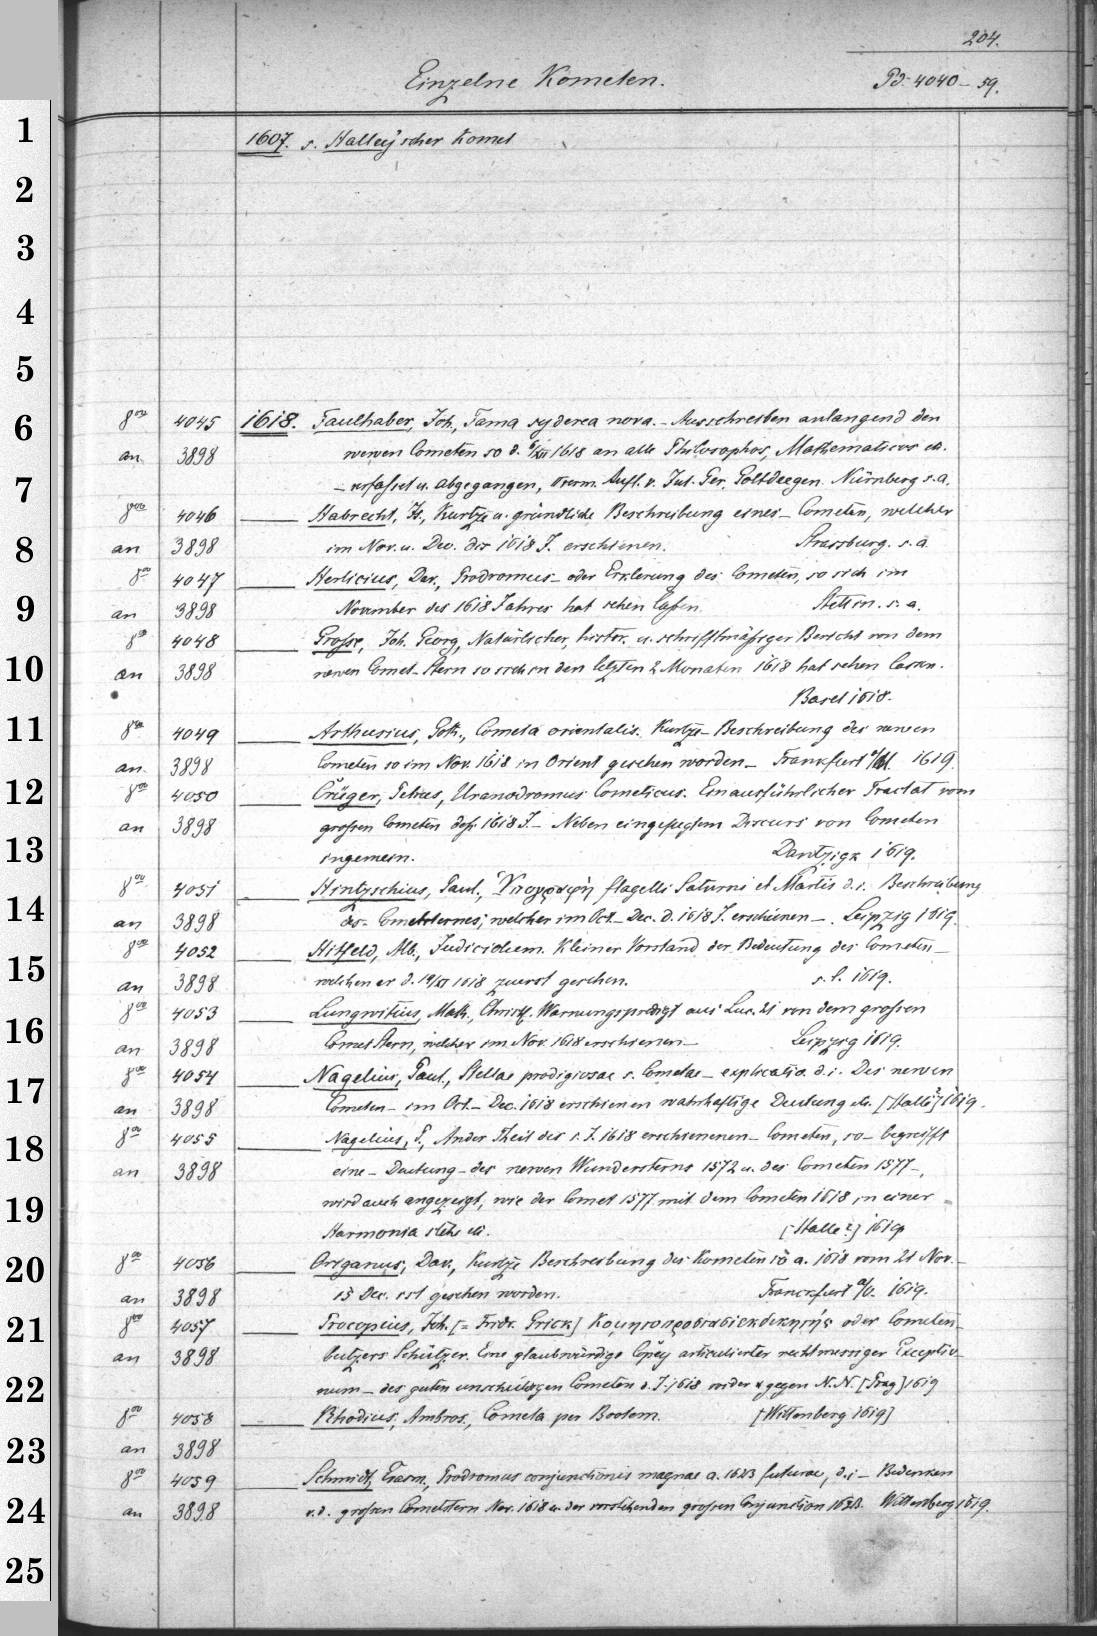 204.
Einzelne Kometen. Pd. 4040-59.
1 1607. s. Halley'scher Komet
2
3
4
5
6 8vo 4045 1618. Faulhaber, Joh., Fama syderea nova. - Ausschreiben anlangend den
an 3898 newen Cometen so d. 1618 an alle Philosophos, Mathematicos etc.
7 - verfasset u. abgegangen, Jul. Ger. Goldtbeegen. Nürnberg s.a.
8vo 4046 Habrecht, Is., Kurtze u. gründliche Beschreibung eines - Cometen, welcher
8 an 3898 im Nov. u. Dec. dis 1618 J. erschienen. Strassburg. s.a.
8vo 4047 Herlicius, Dav., Prodromus - oder Erklerung des Cometen, so sich im
9 an 3898 November des 1618 Jahres hat sehen lassen. Stettin. s.a.
8vo 4048 Grosse, Joh. Georg, Natürlicher, histor. u. schrifftmässiger Bericht von dem
10 an 3898 newen Comet-Stern so sich in den letzten 2 Monaten 1618 hat sehen lassen.
Basel 1618.
11 8vo 4049 Arthusius, Goth., Cometa orientalis. Kurtze - Beschreibung des newen
an 3898 Cometen so im Nov. 1618 in Orient gesehen worden - Frankfurt a/M. 1619.
12 8vo 4050 Crüger, Petrus, Uranodromus Cometicus. Ein ausführlicher Tractat vom
an 3898 grossen Cometen dess 1618 J. - Neben eingefügtem Discurs von Cometen
13 ingemein. Dantzigk 1619.
8vo 4051 Hintzschius, Paul, flagelli Saturni et Martis d.i. Beschreibung
14 an 3898 des - Cometsternes, welcher im Oct. - Dec. d. 1618 J. erschienen -. Leipzig 1619.
8vo 4052 Hitfeld, Alb., Judiciolum. Kleiner Vorstand der Bedeutung des Cometen -
15 an 3898 welchen er d. 19/XI 1618 zuerst gesehen. s.l. 1619.
8vo 4053 Lungwitius, Math., Christl. Warnungspredigt aus Luc. 21 von dem grossen
16 an 3898 Comet Stern, welcher im Nov. 1618 erschienen - Leipzig 1619.
8vo 4054 Nagelius, Paul, Stellae prodigiosae s. Cometae - explicatio d.i. Des newen
17 an 3898 Cometen - im Oct. - Dec. 1618 erschienen wahrhaftige Deutung etc. [Halle?] 1619.
8vo 4055 Nagelius, P., Ander Theil des i. J. 1618 erschienenen - Cometen, so - begreifft
18 an 3898 eine - Deutung - des newen Wundersterns 1572 u. des Cometen 1577 -,
wird auch angezeigt, wie der Comet 1577 mit dem Cometen 1618 in einer
19 Harmonia stehe etc. [Halle?] 1619
20 8vo 4056 Origanus, Dav., Kurtze Beschreibung des Kometen so a. 1618 vom 21 Nov. -
an 3898 15 Dec. ist gesehen worden. Franckfurt a/O. 1619.
21 8vo 4057 Procopius, Joh. [= Fridr. Grick] oder Cometen-
an 3898 butzers Schützer. Eine glaubwürdige Copey articulierter rechtmessiger Exceptio-
22 num - des guten unschuldigen Cometen d. J. 1618 wider u. gegen N.N. [Prag] 1619
8vo 4058 Rhodius, Ambros., Cometa per Bootem. [Wittenberg 1619]
23 an 3898
8vo 4059 Schmidt, Erasm., Prodromus conjunctionis magnae a. 1623 futurae, d.i. - Bedenken
24 an 3898 v.d. grossen Cometstern Nov. 1618 u. der vorstehenden grossen Conjunction 1623. Wittenberg 1619.
25